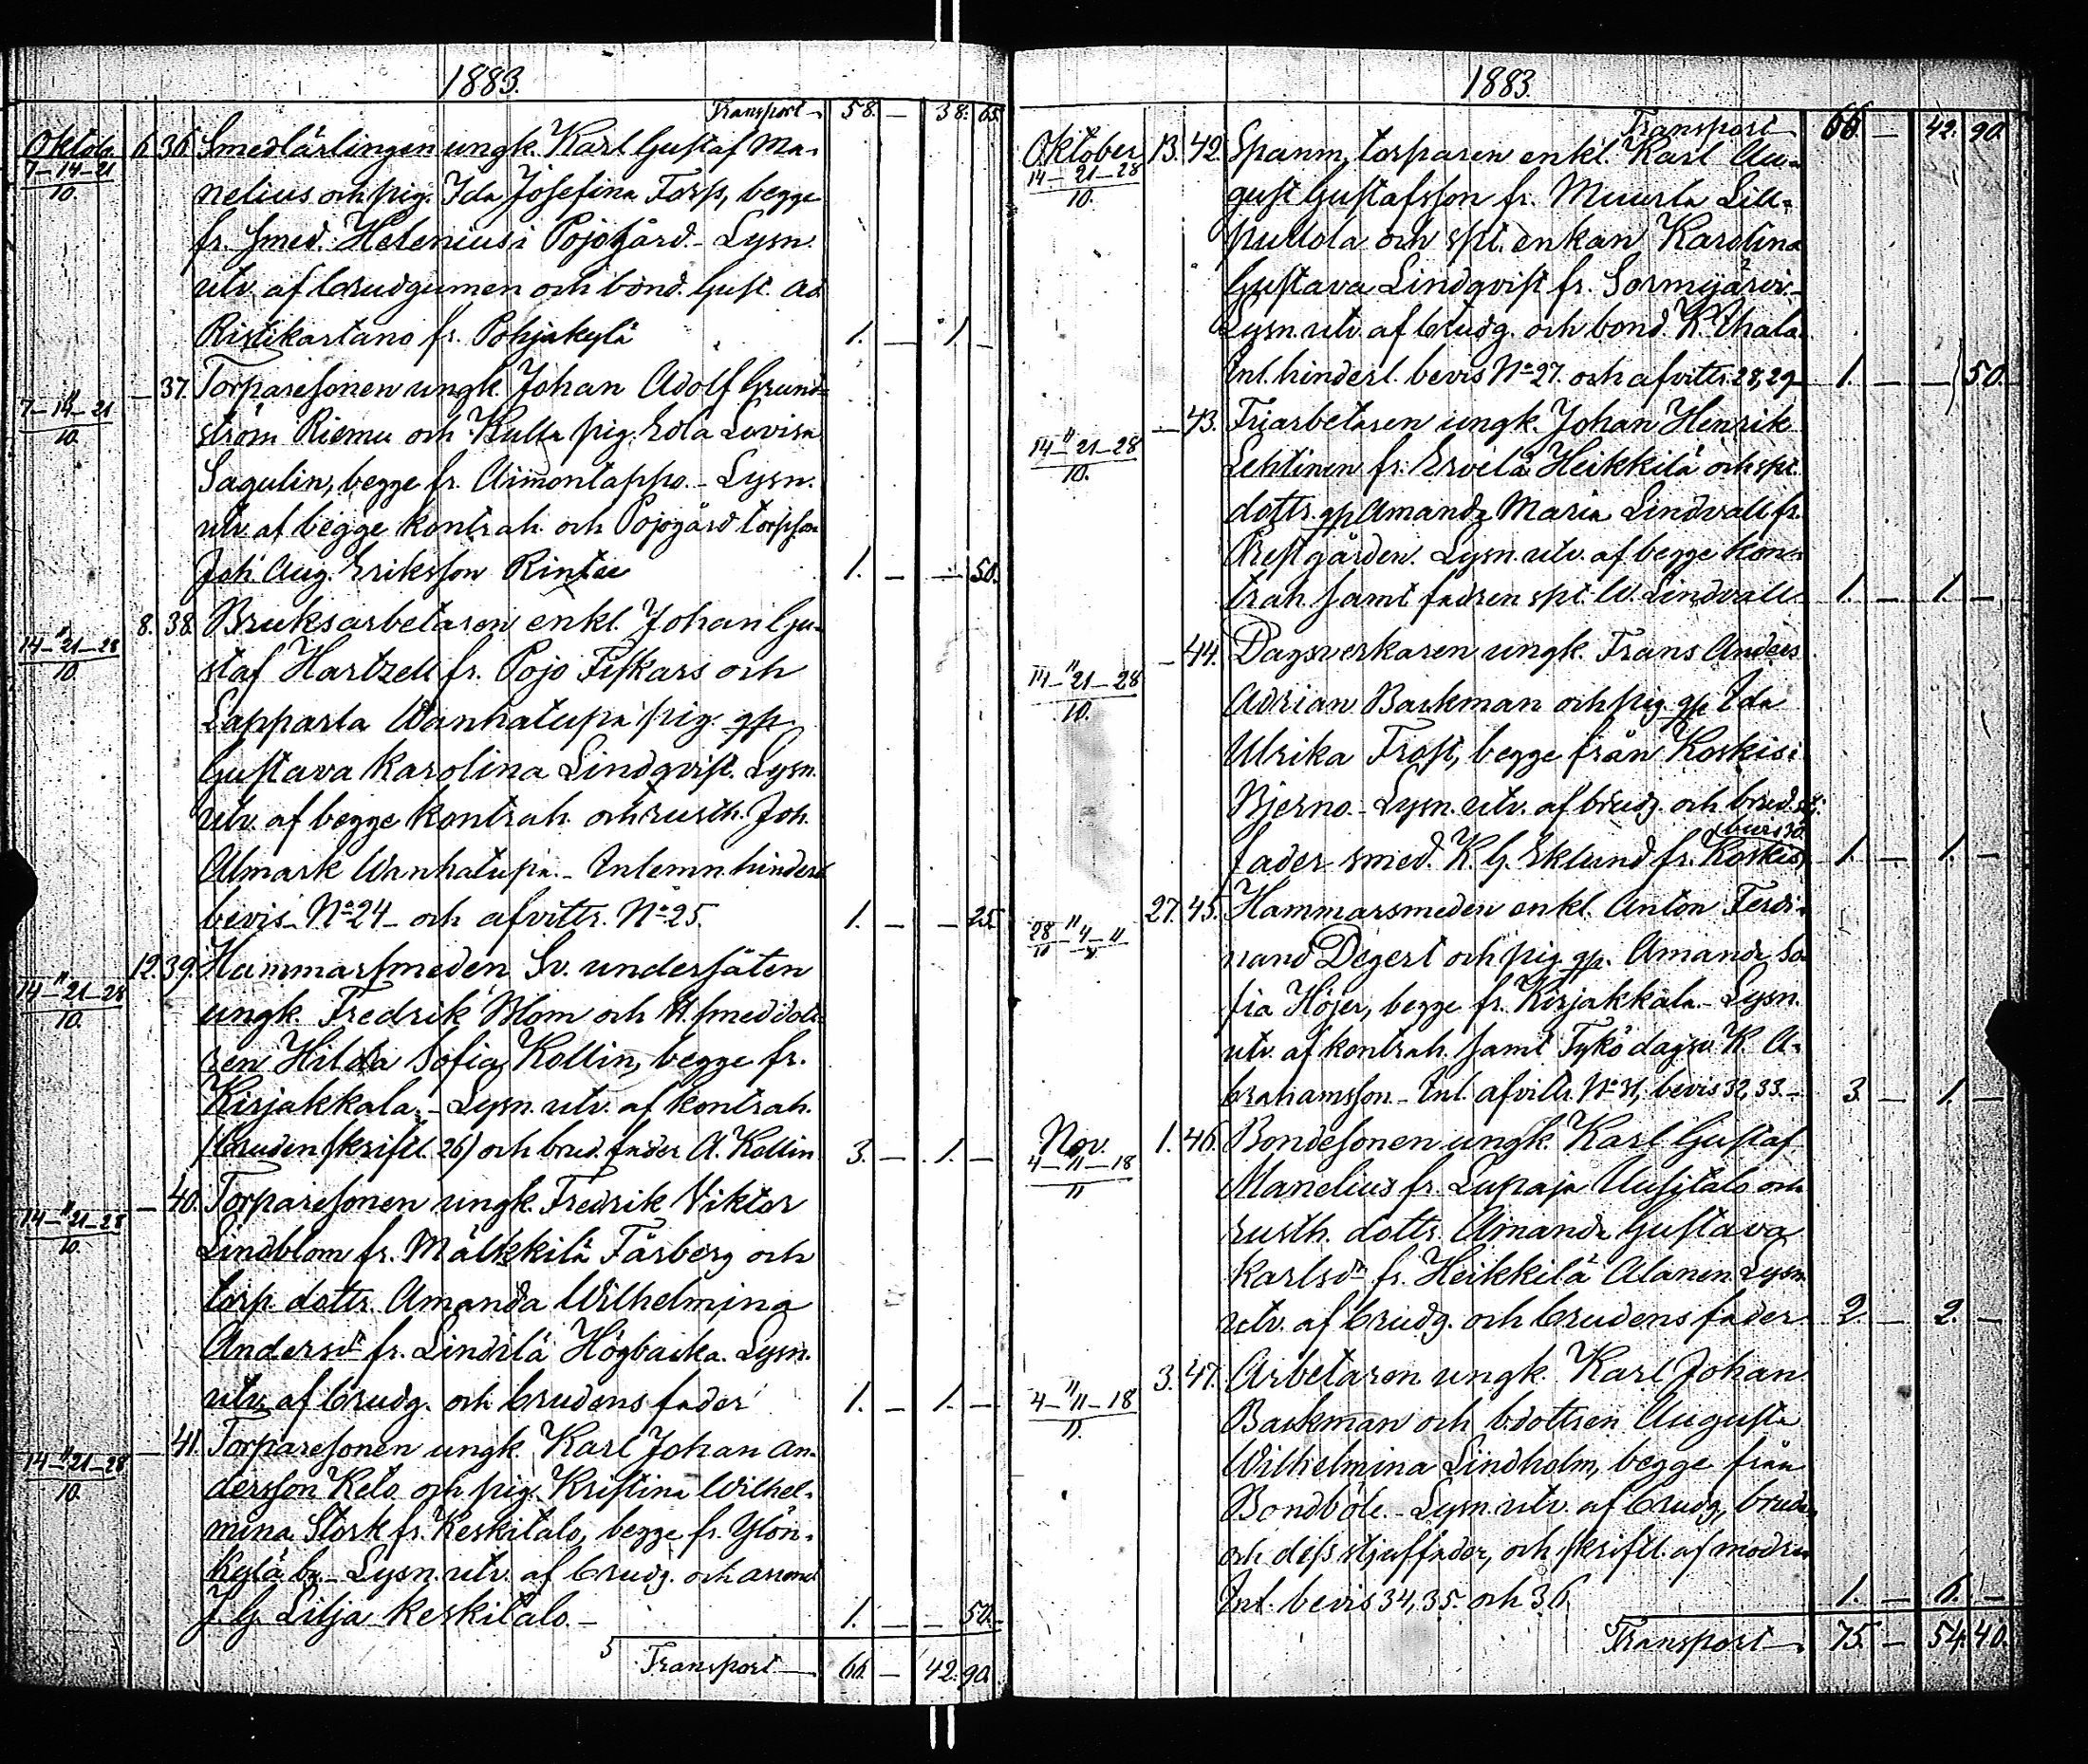 1883.
Transport 58. — 38. 65.
Oktob. 6. 36. Smedlärlingen ungk. Karl Gustaf Ma-
7—14—21
10. nelius och pig. Ida Josefina Forss, begge
fr. smed. Helenius i Pojogård. - Lysn.
utv. af brudgumen och bond. Gust. Ad.
Ristikartano fr. Pohjakylä 1. — 1. —
— 37. Torparesonen ungk. Johan Adolf Grund-
7—14—21
10. ström Riemu och Kulla pig. Eda Lovisa
Sagulin, begge fr. Aimontappo. - Lysn.
utv. af begge kontrah. och Pojogård torpson
Joh. Aug. Eriksson Rintee 1. — — 50.
" 8. 38. Bruksarbetaren enkl. Johan Gu-
14—21—28
10. staf Hartzell fr. Pojo Fiskars och
Lapparla Wanhatupa pig. gp
Gustava Karolina Lindqvist. Lysn.
utv. af begge kontrah. och rusth. Joh.
Almark Wanhatupa. - Inlemn. hinders
bevis No 24 - och afvittr. No 25. 1. — — 25.
" 12. 39. Hammarsmeden, Sv. undersåten
14—21—28
10. ungk. Fredrik Blom och H. smed dott-
ren Hilda Sofia Kollin, begge fr.
Kirjakkala. - Lysn. utv. af kontrah.
(bruden skriftl. 26) och brud. fader A. Kollin 3. — 1. —
" — 40. Torparesonen ungk. Fredrik Viktor
14—21—28
10. Lindblom fr. Mälkkilä Färberg och
torp. dottr. Amanda Wilhelmina
Andersdr fr. Lindilä Högbacka. Lysn.
utv. af brudg. och brudens fader 1. — 1. —
" — 41. Torparesonen ungk. Karl Johan An-
14—21—28
10. dersson Keto och pig. Kristina Wilhel-
mina Stork fr. Keskitalo, begge fr. Ylön-
kylä by. - Lysn. utv. af brudg. och arrend.
J. G. Lilja Keskitalo. - 1. — — 50.
Transport — 66. — 42. 90.
1883.
Transport — 66. — 42. 90.
Oktober 13. 42. Spanm. torparen enkl. Karl Au-
14—21—28
10. gust Gustafsson fr. Muurla Lill-
pullola och spt. enkan Karolina
Gustava Lindqvist fr. Sormijärvi. -
Lysn. utv. af brudg. och bond. K. Uhala.
Inl. hinderl. bevis No 27. och afvittr. 28, 29 — 1. — — 50.
" — 43. Friarbetaren ungk. Johan Henrik
14—21—28
10. Lehtinen fr. Ervelä Heikkilä och spt.
dottr. gp Amanda Maria Lindvall fr.
Prestgården. Lysn. utv. af begge kon-
trah. samt fadren spt. W. Lindvall 1. — 1. —
" — 44. Dagsverkaren ungk. Frans Anders
14—21—28
10. Adrian Backman och pig. gp Ida
Ulrika Frost, begge från Koskis i
Bjerno. - Lysn. utv. af brudg. och brud. st.
bevis 30.
fader smed. K. G. Eklund fr. Koskis 1. — 1. —
" 27. 45. Hammarsmeden enkl. Anton Ferdi-
28—4—11
10 11 nand Degert och pig. gp. Amanda So-
fia Höjer, begge fr. Kirjakkala. - Lysn.
utv. af kontrah. samt Tykö dagsv. K. A-
brahamsson. - Inl. afvittr. No 31, bevis 32, 33. - 3. — 1. —
Nov. 1. 46. Bondesonen ungk. Karl Gustaf
4—11—18
11 Manelius fr. Lupaja Uusitalo och
rusth. dottr. Amanda Gustava
Karlsdr fr. Heikkilä Alanen. Lysn.
utv. af brudg. och brudens fader 2. — 2. —
" 3. 47. Arbetaren ungk. Karl Johan
4—11—18
11. Backman och b.dottren Augusta
Wilhelmina Lindholm, begge från
Bondböle. - Lysn. utv. af brudg., bruden
och dess stjuffader, och skriftl. af modren
Inl. bevis 34, 35. och 36. 1. — 6. —
Transport — 75. — 54. 40.